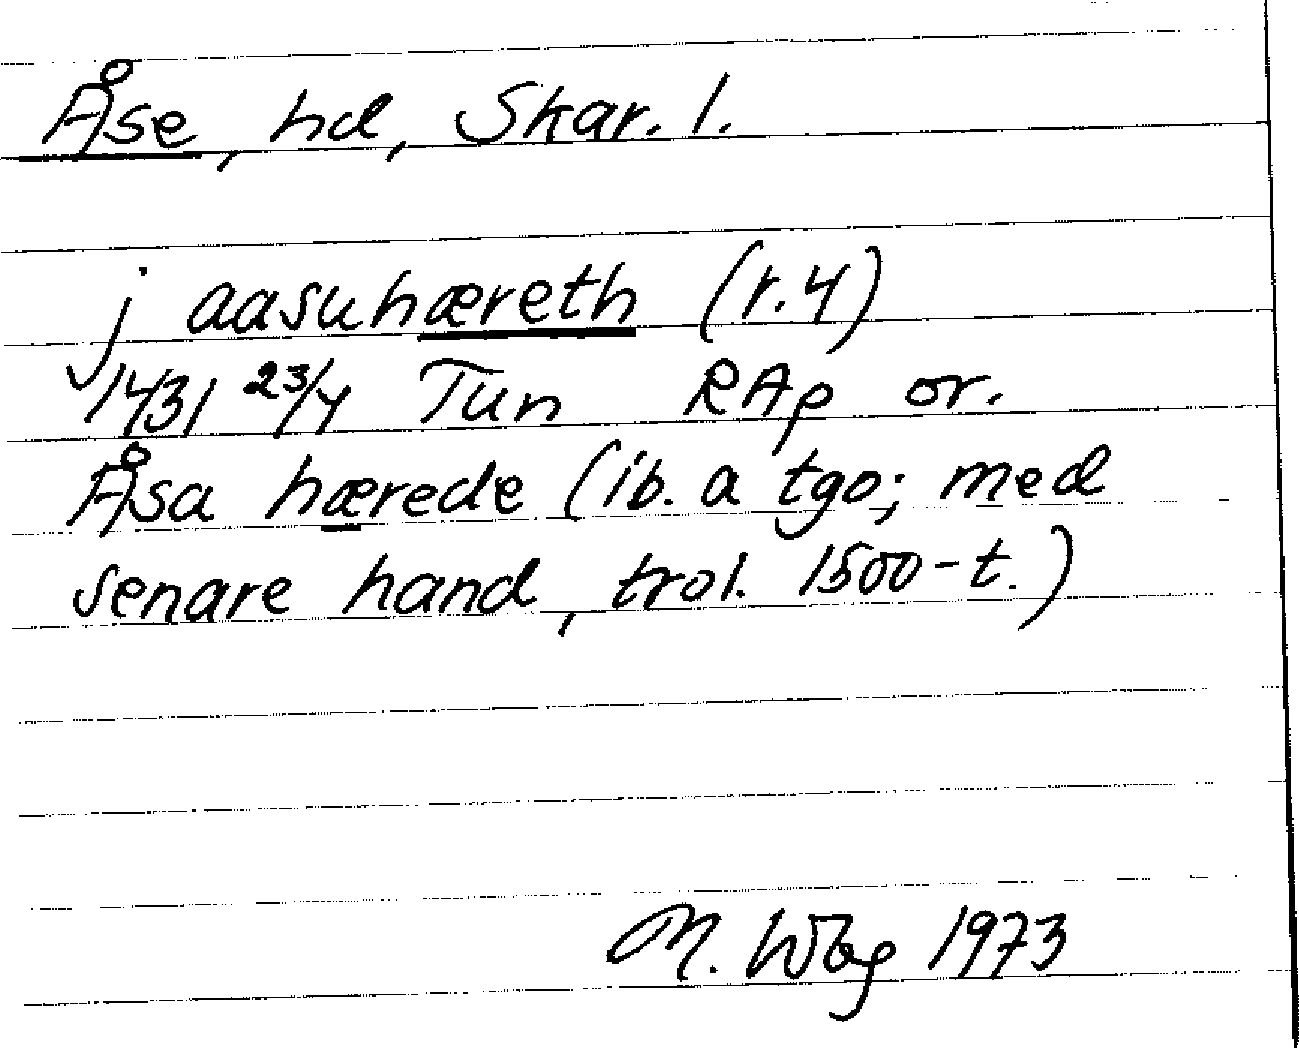 Åse, hd, Skar. l.
j aasuhæreth (r.4)
1431 23/4 Tun RAp or.
Åsa hærede (ib. a tgo; med
senare hand, trol. 1500-t.)
M. Wbg 1973